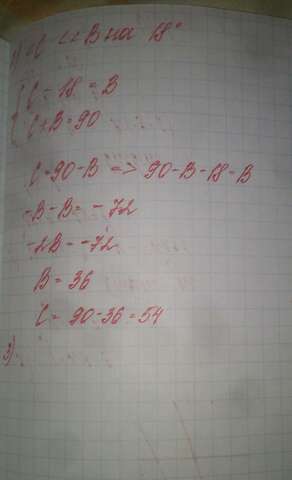 C < B на 18°
C - 18 = B
C + B = 90
C = 90 - B => 90 - B - 18 = B
-B - B = -72
-2B = -72
B = 36
C = 90 - 36 = 54
3)